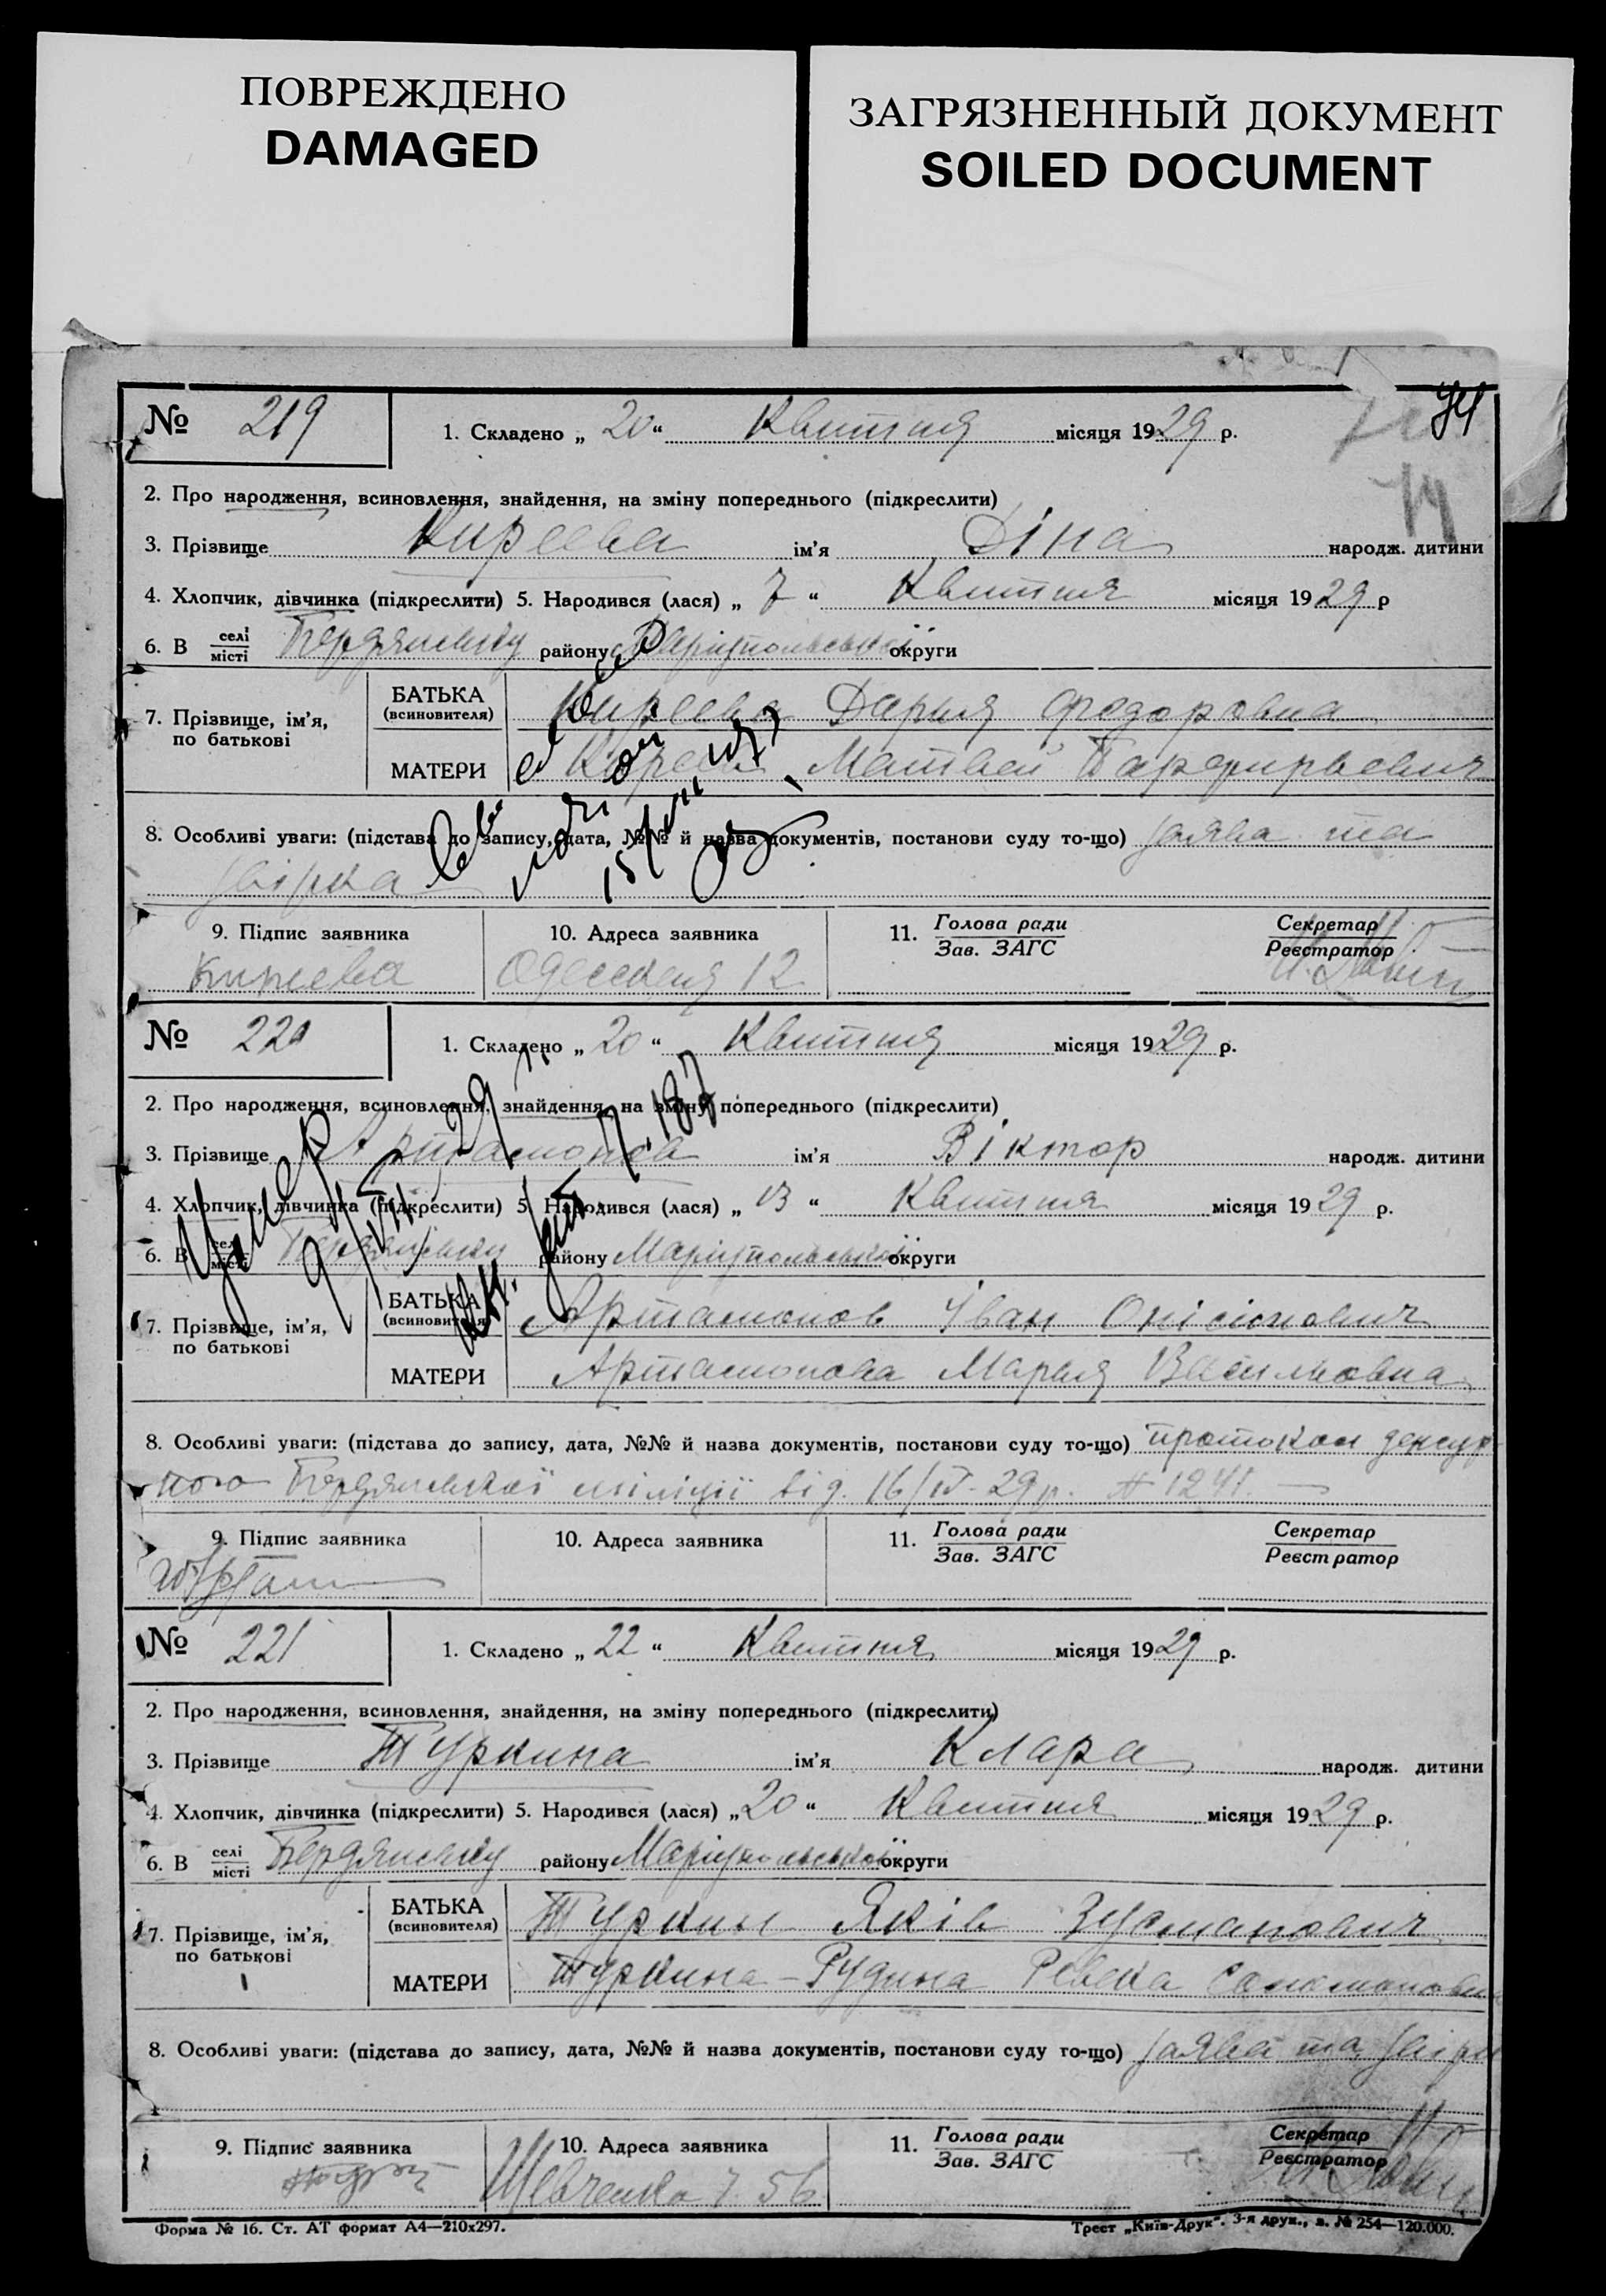 ПОВРЕЖДЕНО
DAMAGED
ЗАГРЯЗНЕННЫЙ ДОКУМЕНТ
SOILED DOCUMENT
74
№ 219
1. Складено „ 20 “ Квитня місяця 1929 р.
2. Про народження, всиновлення, знайдення, на зміну попереднього (підкреслити)
3. Прізвище Киреева ім’я Діна народж. дитини
4. Хлопчик, дівчинка (підкреслити) 5. Народився (лася) „ 7 “ Квитня місяця 1929 р
6. В селі місті Бердянську району Маріупольської округи
7. Прізвище, ім’я, по батькові
БАТЬКА (всиновителя) Киреева Дарья Федоровна
МАТЕРИ Киреев Матвей Парфирьевич
8. Особливі уваги: (підстава до запису, дата, №№ й назва документів, постанови суду то-що) заява та
звірка
9. Підпис заявника 10. Адреса заявника 11. Голова ради Зав. ЗАГС Секретар Реєстратор
Киреева Одесская 12
№ 220
1. Складено „ 20 “ Квитня місяця 1929 р.
2. Про народження, всиновлення, знайдення, на зміну попереднього (підкреслити)
3. Прізвище Артамонов ім’я Віктор народж. дитини
4. Хлопчик, дівчинка (підкреслити) 5. Народився (лася) „ 13 “ Квитня місяця 1929 р.
6. В селі місті Бердянську району Маріупольської округи
Умер
7. Прізвище, ім’я, по батькові
БАТЬКА (всиновителя) Артамонов Іван Онісімович
МАТЕРИ Артамонова Марья Васильовна
8. Особливі уваги: (підстава до запису, дата, №№ й назва документів, постанови суду то-що) протокол дежур-
ного Бердянської міліції від. 16/IV-29р. № 1241.
9. Підпис заявника 10. Адреса заявника 11. Голова ради Зав. ЗАГС Секретар Реєстратор
№ 221
1. Складено „ 22 “ Квитня місяця 1929 р.
2. Про народження, всиновлення, знайдення, на зміну попереднього (підкреслити)
3. Прізвище Туркина ім’я Клара народж. дитини
4. Хлопчик, дівчинка (підкреслити) 5. Народився (лася) „ 20 “ Квитня місяця 1929 р.
6. В селі місті Бердянську району Маріупольської округи
7. Прізвище, ім’я, по батькові
БАТЬКА (всиновителя) Туркин Яків Зусманович
МАТЕРИ Туркина-Рудина Ревека Соломоновна
8. Особливі уваги: (підстава до запису, дата, №№ й назва документів, постанови суду то-що) заява та звірка
9. Підпис заявника 10. Адреса заявника 11. Голова ради Зав. ЗАГС Секретар Реєстратор
Шевченка 7. 56
Форма № 16. Ст. АТ формат А4—210х297.
Трест „Київ-Друк“. 3-я друк., з. № 254—120.000.